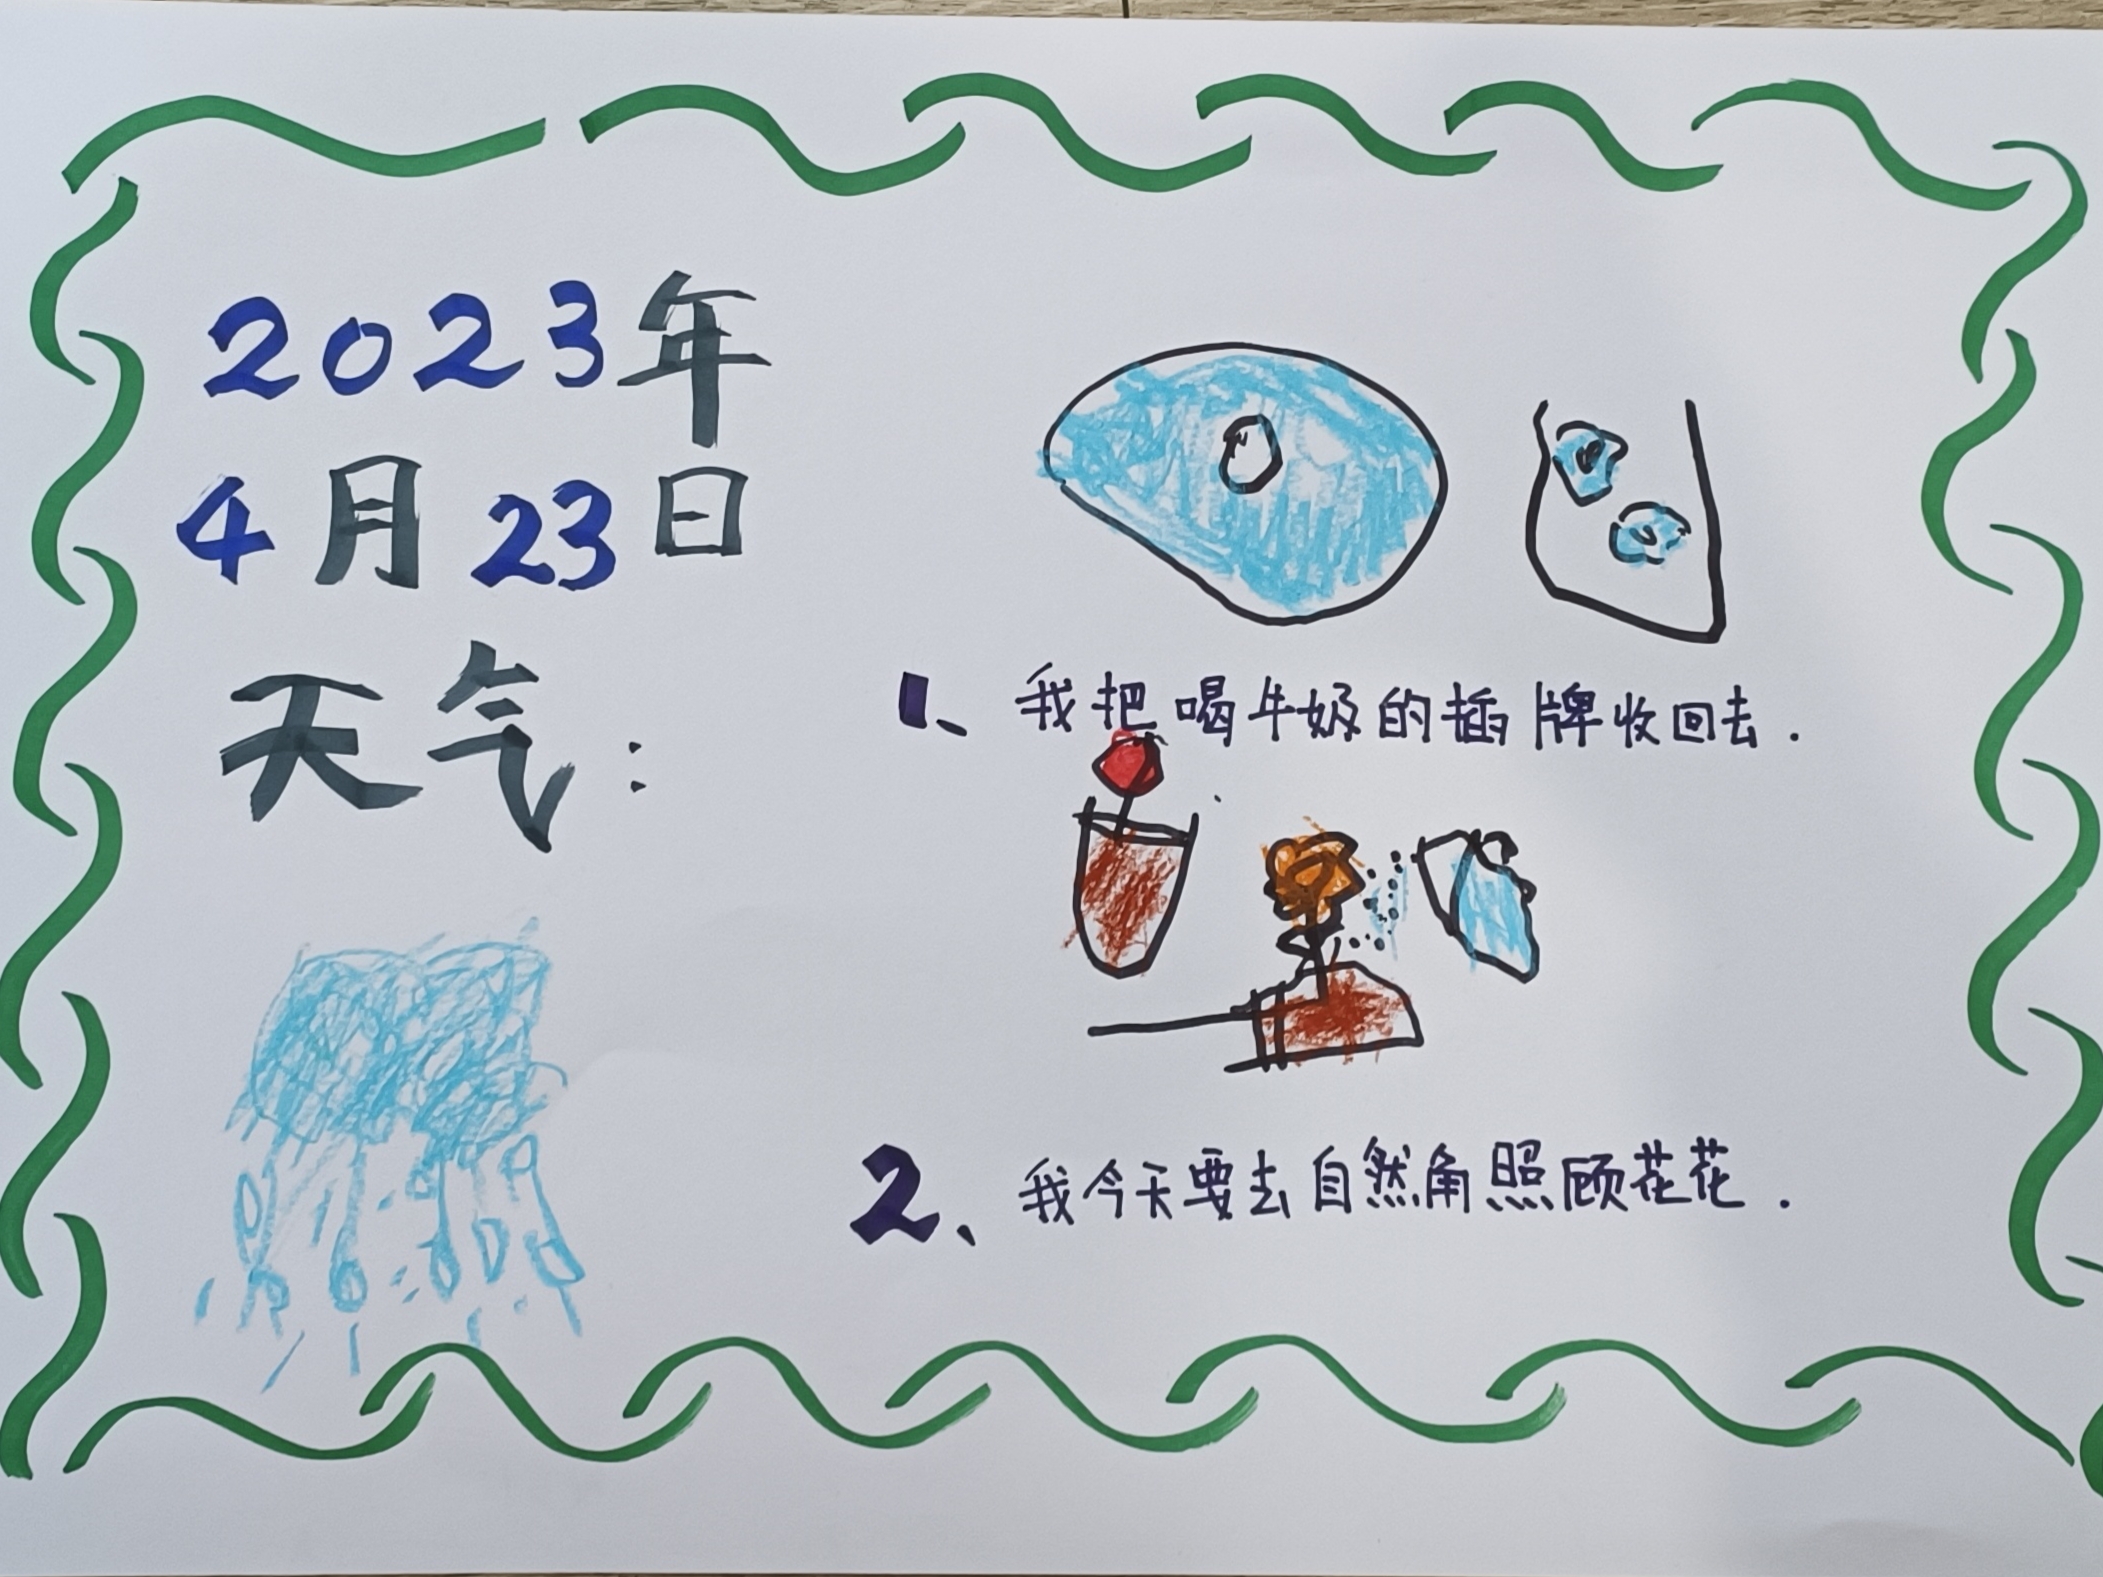 2023年
4月23日
天气:
1、我把喝牛奶的插牌收回去.
2、我今天要去自然角照顾花花.